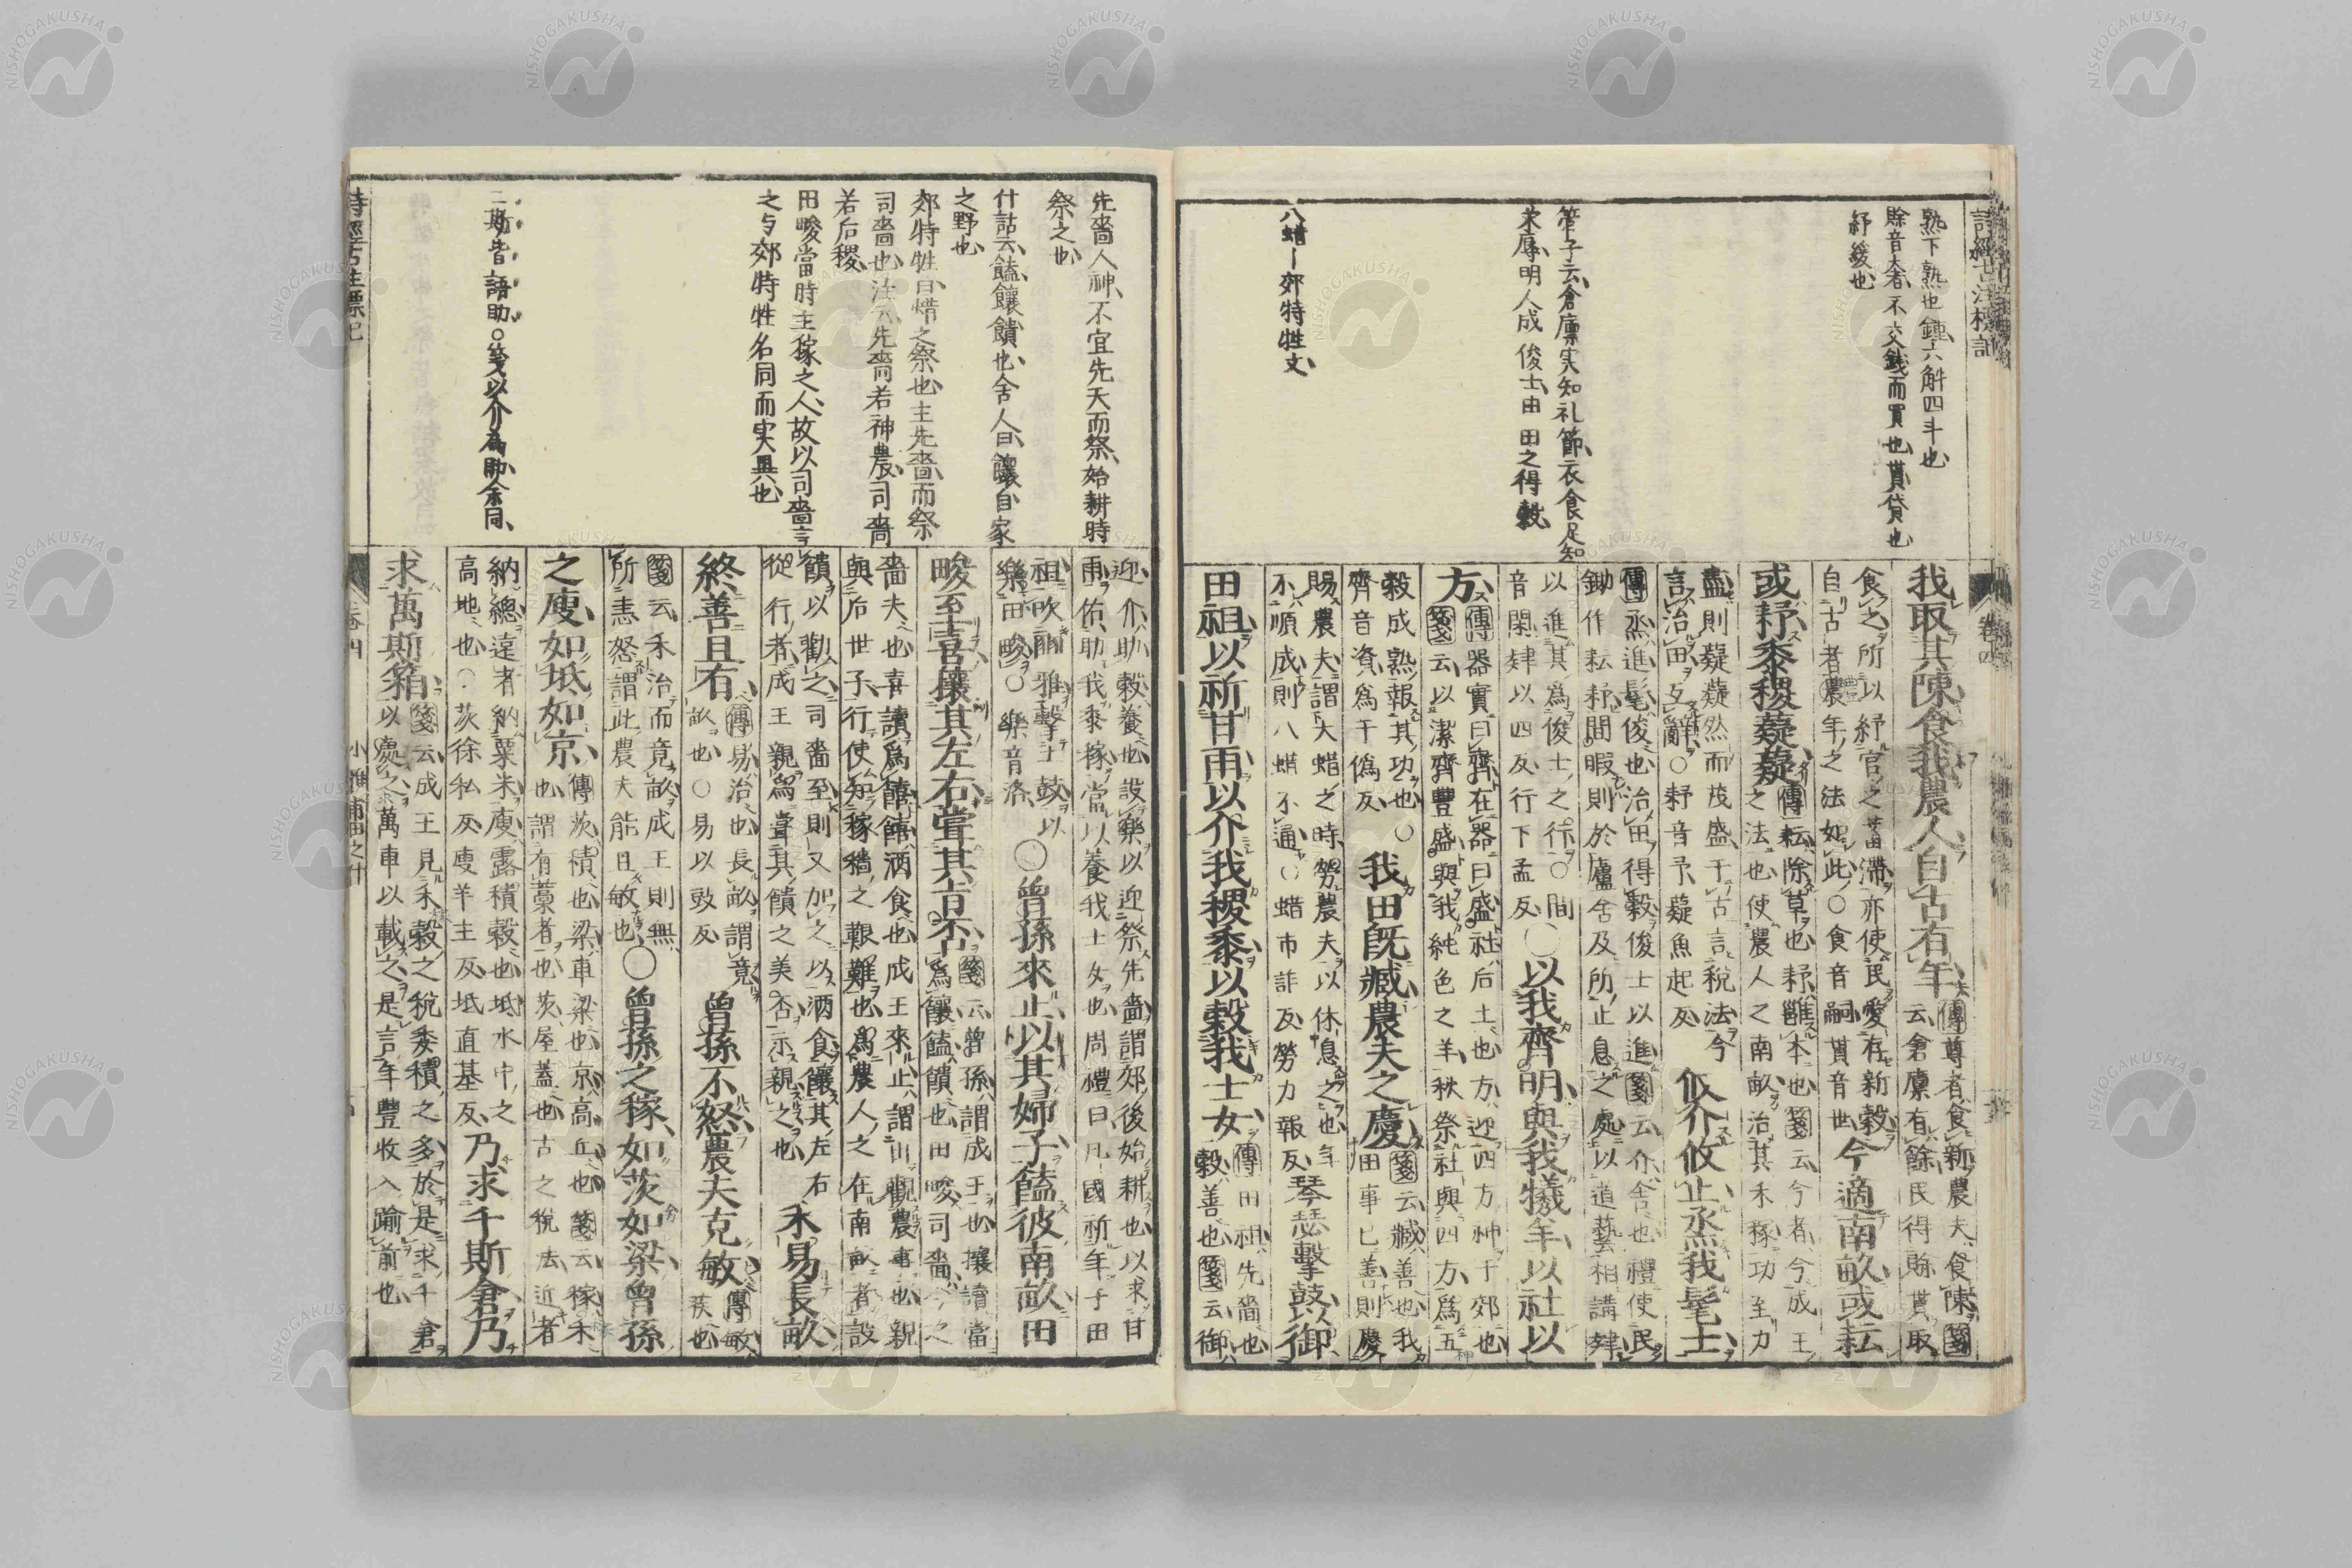 詩經古注標記
熟下熟也鍾六斛四斗也
賖音大者不交錢而買也貰貸也
紓緩也
管子云倉廩実知礼節衣食足知
栄辱明人成俊士由田之得穀
八蜡ー郊特牲文
卷四
我取其陳食我農人自古有年傳尊者食新農夫食陳箋
云倉廪有餘民得賖貰取
食之所以紓官之蓄滯亦使民愛存新穀
自古者農年之法如此○食音嗣貰音世今適南畝或耘
或耔黍稷薿薿傳耘除草也耔雝本也箋云今者今成王
之法也使農人之南畝治其禾稼功至力
盡則薿薿然而茂盛于古言税法今
言治田互辭○耔音子薿魚起反攸介攸止烝我髦士
傳烝進髦俊也治田得穀俊士以進箋云介舍也禮使民
鋤作耘耔間暇則於廬舍及所止息之處以道藝相講肄
以進其爲俊士之行○間
音閑肄以四反行下孟反○以我齊明與我犧羊以社以
方傳器實曰齊在器曰盛社后土也方迎四方神于郊也
箋云以潔齊豐盛與我純色之羊秋祭社與四方爲五
穀成熟報其功也○
齊音資爲于僞反我田既臧農夫之慶箋云臧善也我
田事已善則慶
賜農夫謂大蜡之時勞農夫以休息之也年
不順成則八蜡不通○蜡市詐反勞力報反琴瑟擊鼓以御
田祖以祈甘雨以介我稷黍以穀我士女傳田祖先嗇也
穀善也箋云御
先嗇人神不宜先天而祭始耕時
祭之也
什詁云饁饟饋也舍人曰饟自家
之野也
郊特牲曰蜡之祭也主先嗇而祭
司嗇也注云先嗇若神農司嗇
若后稷
田畯當時主稼之人故以司嗇言
之与郊特牲名同而実異也
二斯皆語助○箋以介爲助余同
迎介助穀養也設樂以迎祭先嗇謂郊後始耕也以求甘
雨佑助我黍稼當以養我士女也周禮曰凡國祈年于田
祖吹豳雅擊土鼓以
樂田畯○樂音洛○曾孫來止以其婦子饁彼南畝田
畯至喜攘其左右嘗其旨否箋云曾孫謂成王也攘讀當
爲饟饁饋也田畯司嗇今之
嗇夫也喜讀爲饎饎酒食也成王來止謂出觀農事也親
與后世子行使知稼穡之艱難也爲農人之在南畝者設
饋以勸之司嗇至則又加之以酒食饟其左右
從行者成王親爲嘗其饋之美否示親之也禾易長畝
終善且有傳易治也長畝謂竟
畝也○易以豉反曾孫不怒農夫克敏傳敏
疾也
箋云禾治而竟畝成王則無
所恚怒謂此農夫能且敏也○曾孫之稼如茨如梁曾孫
之庾如坻如京傳茨積也梁車梁也京高丘也箋云稼禾
也謂有藁者也茨屋蓋也古之稅法近者
納總遠者納粟米庾露積穀也坻水中之
高地也○茨徐私反庾羊主反坻直基反乃求千斯倉乃
求萬斯箱箋云成王見禾穀之稅委積之多於是求千倉
以處之萬車以載之是言年豐收入踰前也
詩經古注標記
卷四
小雅甫田之什